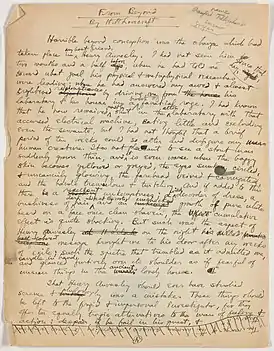 From Beyond
By
Horrible beyond conception was the change which had
taken place in my best friend, Henry Annesley. I had not seen him
two months and a half before when he had told me
toward what goal his physical & metaphysical researches
were leading; when he had answered my awed & almost
frightened remonstrances by driving me from his
laboratory & his house in a fanatical rage. I had known
that he now remained in the laboratory with that
accursed electrical machine, eating little & excluding
even the servants, but I had not thought that a brief
period of ten weeks could so alter and disfigure any human
creature. It is not pleasant to see a stout man
suddenly grown thin, and is even worse when the baggy
skin becomes yellowed or greyed, the eyes sunken, circled,
& uncannily glowing, the forehead veined & corrugated,
and the hands tremulous & twitching. And if added to this
there be a repellent unkemptness, a disorder of dress, a
bushiness of dark hair white at the roots, and an unchecked growth of pure white
beard on a face once clean-shaven, the cumulative
effect is quite shocking. But such was the aspect of
Henry Annesley on the night his half-coherent
message brought me to his door after my weeks
of exile; such the spectre that trembled as it admitted me,
candle in hand, and glanced furtively over its shoulder as if fearful of
unseen things in the ancient, lonely house.
That Henry Annesley should ever have studied
science & philosophy was a mistake. These things should
be left to the frigid & impersonal investigator, for they
offer two equally tragic alternatives to the man of feeling &
action; despair if he fail in his quest,